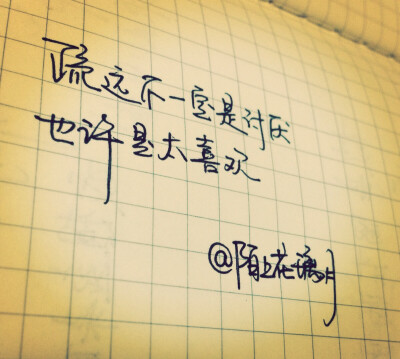 疏远不一定是讨厌
也许是太喜欢
@陌上花瑀月